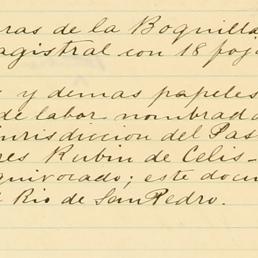 ras de la Boquilla
agistral con 18 foja
y demas papeles
de labor nombrada
jurisdiccion del Pas
res Rubin de Celis-
quivocado; este docu
Rio de San Pedro.